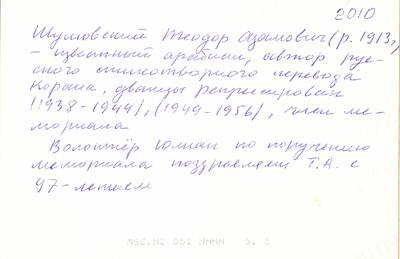 2010
Шумовский Теодор Адамович (р. 1913г)
- известный арабист, автор рус-
ского стихотворного перевода
Корана, дважды репрессирован
(1938-1944), (1949-1956), член ме-
мориала
Волонтёр Юлиан по поручению
мемориала поздравляет Т.А. с
97-летием
MSC.N2 051 NNNN G. 3